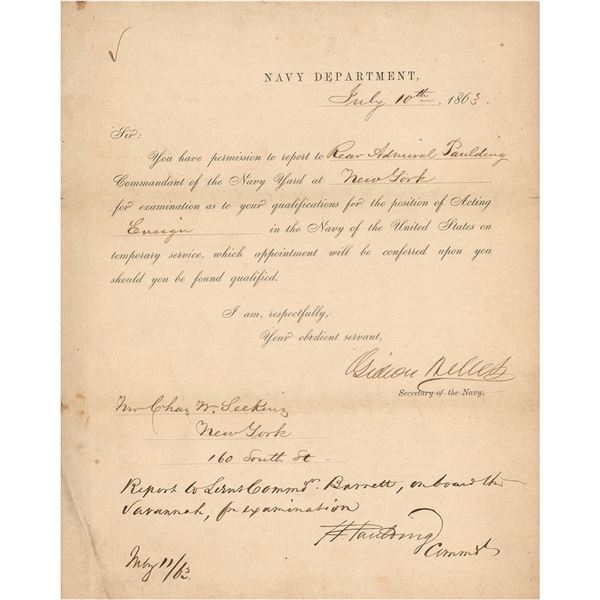 NAVY DEPARTMENT,
July 10th, 1863.
Sir:
You have permission to report to Rear Admiral Paulding
Commandant of the Navy Yard at New York
for examination as to your qualifications for the position of Acting
Ensign in the Navy of the United States on
temporary service, which appointment will be conferred upon you
should you be found qualified.
I am, respectfully,
Your obedient servant,
Gideon Welles
Secretary of the Navy.
Mr Chas W. Seekins
New York
160 South St
Report to Lieut Commdr. Barrett, on board the
Savannah, for examination
H Paulding
Commdt
11/63